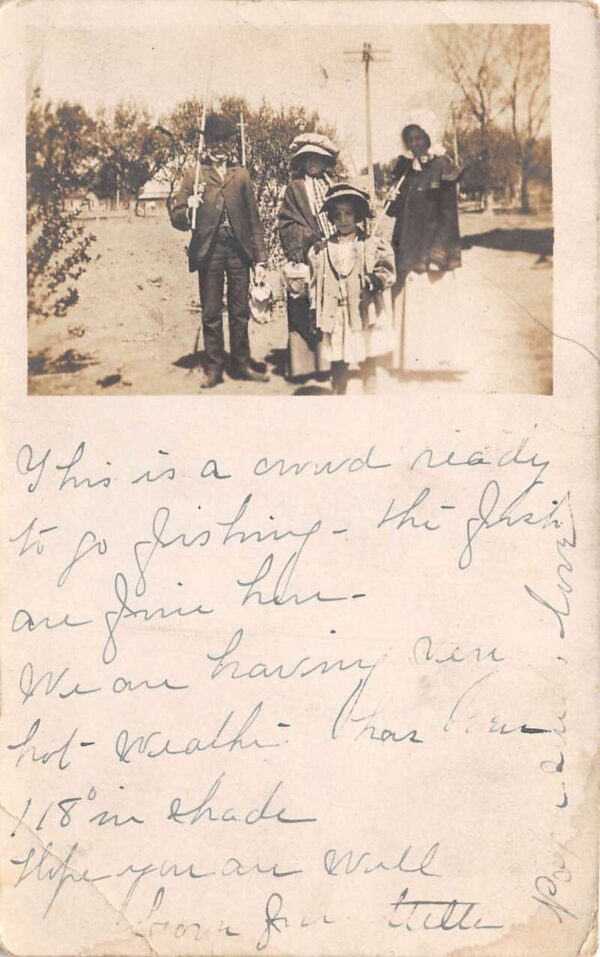 This is a crowd ready
to go fishing - the fish
are fine here -
We are having very
hot weather has been
118° in shade
Hope you are well
love from Stella
love